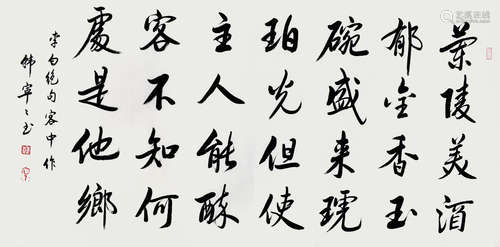 蘭陵美酒
郁金香玉
碗盛来琥
珀光但使
主人能醉
客不知何
處是他鄉
李白绝句客中作
韩寧寧书